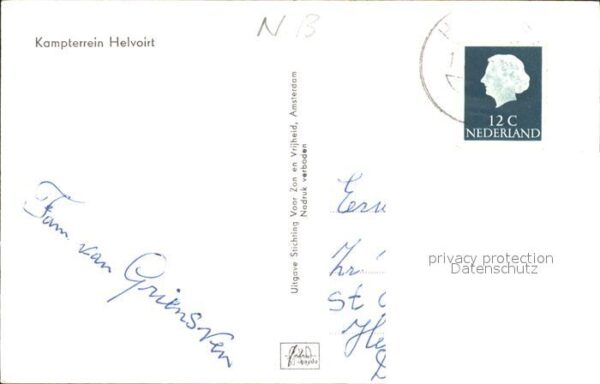 N B
Kampterrein Helvoirt
12 C
NEDERLAND
Uitgave Stichting Voor Zon en Vrijheid, Amsterdam
Nadruk verboden
Fam van Griensven
St
privacy protection
Datenschutz